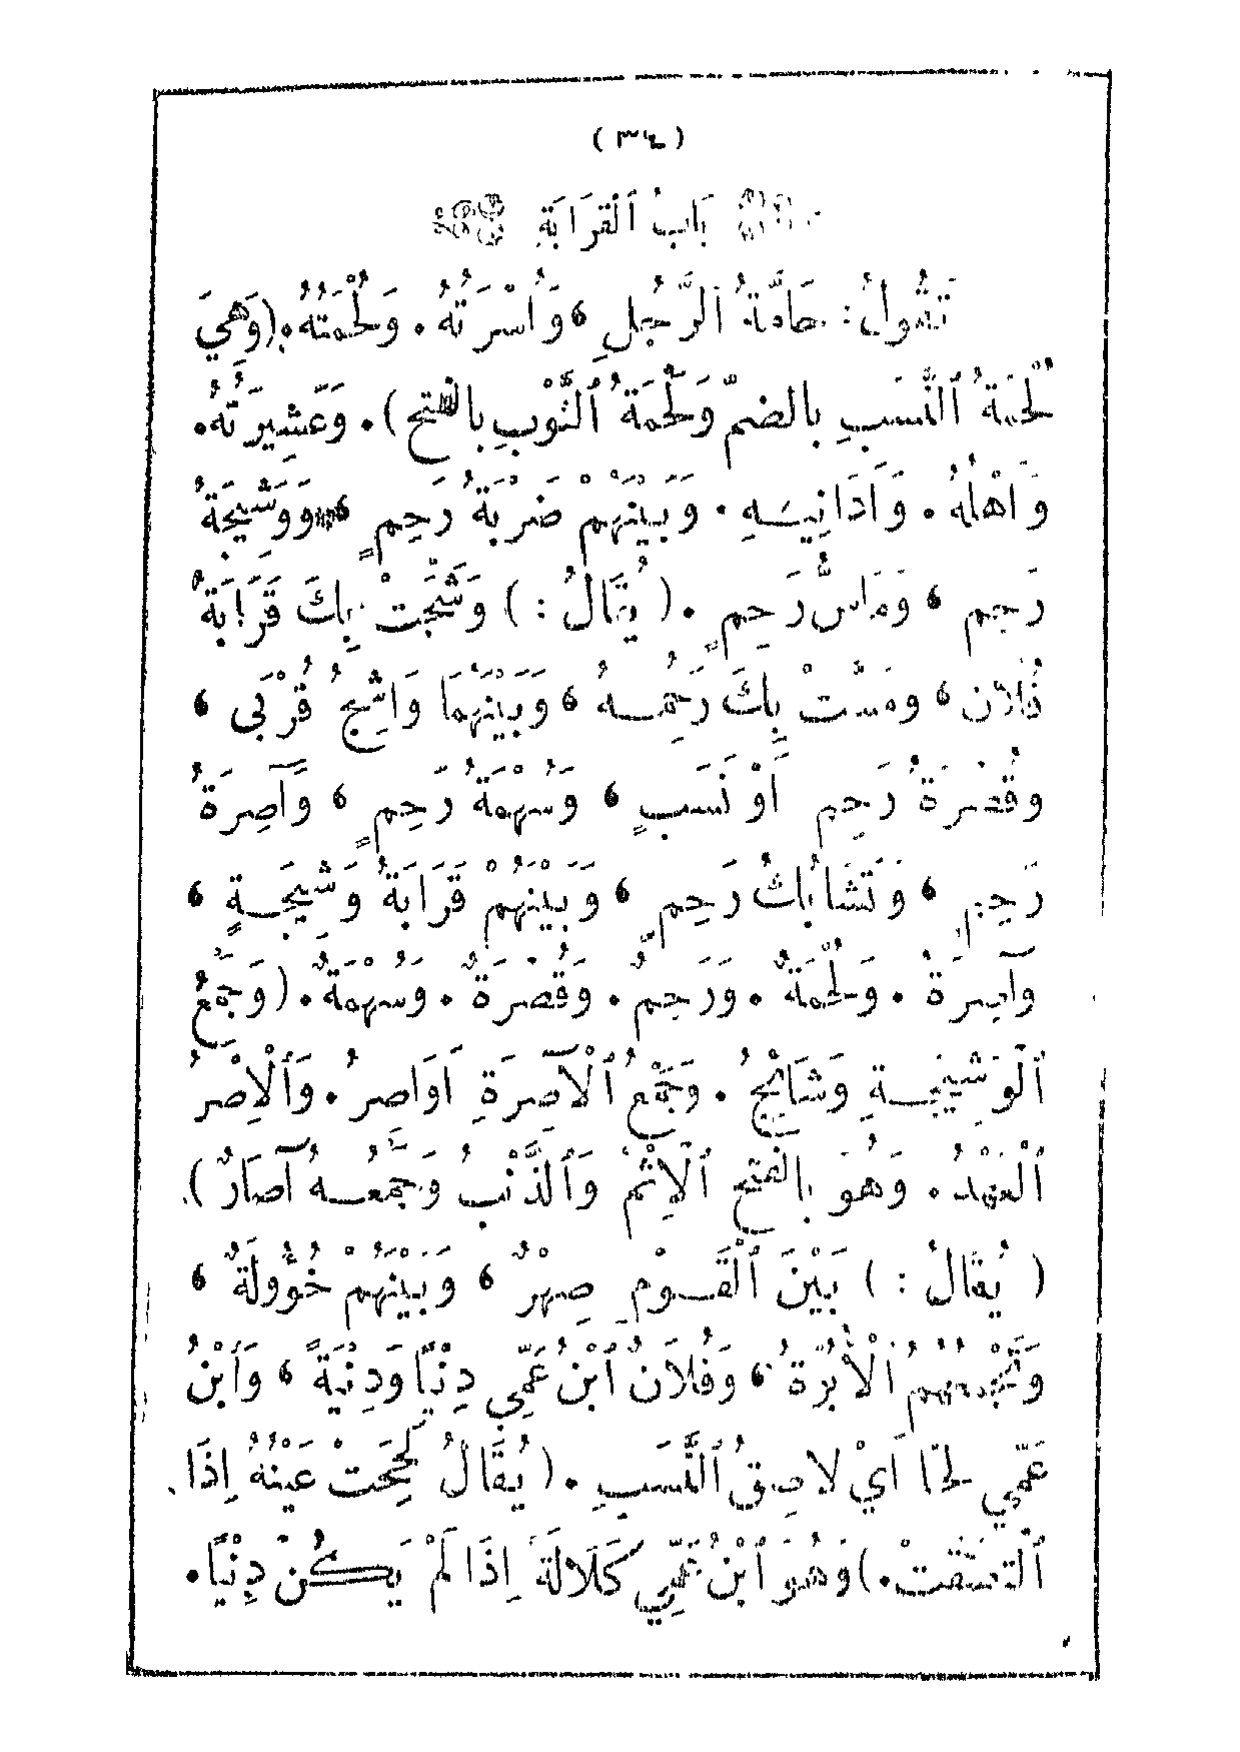 ( ٣٤ )
بَابُ ٱلْقَرَابَةِ
تَقُولُ: حَامَّةُ ٱلرَّجُلِ ، وَأُسْرَتُهُ . وَلُحْمَتُهُ . (وَهِيَ
لُحْمَةُ ٱلنَّسَبِ بِالضَمِّ وَلَحْمَةُ ٱلثَّوْبِ بِالفَتْحِ) . وَعَشِيرَتُهُ .
وَأَهْلُهُ . وَأَدَانِيهِ . وَبَيْنَهُمْ ضَرْبَةُ رَحِمٍ ، وَوَشِيجَةُ
رَحِمٍ ، وَمَاسُّ رَحِمٍ . ( يُقَالُ : ) وَشَجَتْ بِكَ قَرَابَةُ
فُلَانٍ ، وَمَسَّتْ بِكَ رَحِمُهُ ، وَبَيْنَهُمَا وَاشِجُ قُرْبَى ،
وَقُصْرَةُ رَحِمٍ أَوْ نَسَبٍ ، وَسُهْمَةُ رَحِمٍ ، وَآصِرَةُ
رَحِمٍ ، وَتَشَابُكُ رَحِمٍ ، وَبَيْنَهُمْ قَرَابَةٌ وَشِيجَةٍ ،
وَآصِرَةٌ . وَلُحْمَةٌ . وَرَحِمٌ . وَقُصْرَةٌ . وَسُهْمَةٌ . ( وَجَمْعُ
ٱلْوَشِيجَةِ وَشَائِجُ . وَجَمْعُ ٱلْآصِرَةِ أَوَاصِرُ . وَٱلْإِصْرُ
ٱلْعَهْدُ . وَهُوَ بِالفَتْحِ ٱلْإِثْمُ وَٱلذَّنْبُ وَجَمْعُهُ آصَارٌ ) .
( يُقَالُ : ) بَيْنَ ٱلْقَوْمِ صِهْرٌ ، وَبَيْنَهُمْ خُؤُولَةٌ ،
وَتَجْمَعُهُمُ ٱلْأُبُوَّةُ ، وَفُلَانٌ ٱبْنُ عَمِّي دِنْيًا وَدِنْيَةً ، وَٱبْنُ
عَمِّي لَحًّا أَيْ لَاصِقُ ٱلنَّسَبِ . ( يُقَالُ لَحِحَتْ عَيْنُهُ إِذَا
ٱلْتَصَقَتْ . ) وَهُوَ ٱبْنُ عَمِّي كَلَالَةً إِذَا لَمْ يَكُنْ دِنْيًا .